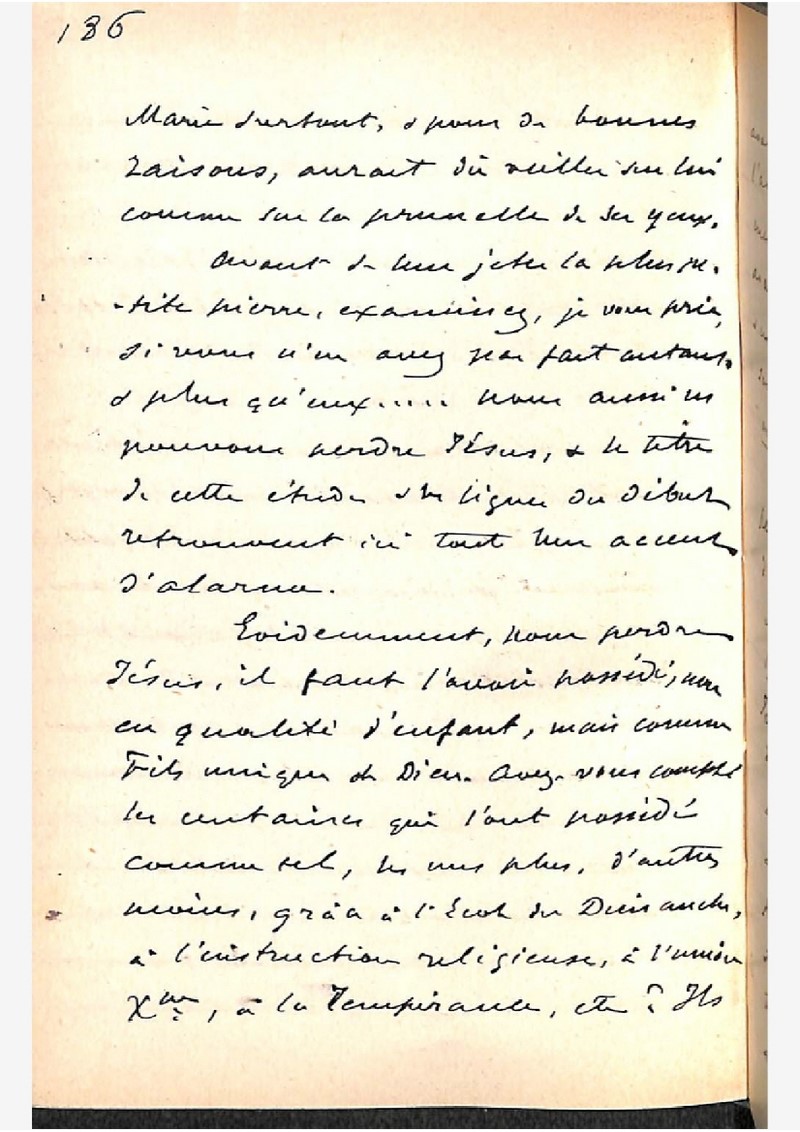 136
Marie surtout, & pour de bonnes
raisons, aurait dû veiller sur lui
comme sur la prunelle de ses yeux.
Avant de leur jeter la plus pe-
-tite pierre, examinez, je vous prie,
si vous n'en avez pas fait autant,
& plus qu'eux..... Nous aussi ns
pouvons perdre Jésus, & le titre
de cette étude & les lignes du début
retrouvent ici tout leur accent
d'alarme.
Evidemment, pour perdre
Jésus, il faut l'avoir possédé, non
en qualité d'enfant, mais comme
Fils unique de Dieu. Avez-vous compté
les centaines qui l'ont possédé
comme tel, les uns plus, d'autres
moins, grâce à l'Ecole du Dimanche,
à l'instruction religieuse, à l'union
Xne, à la Tempérance, etc ? Ils